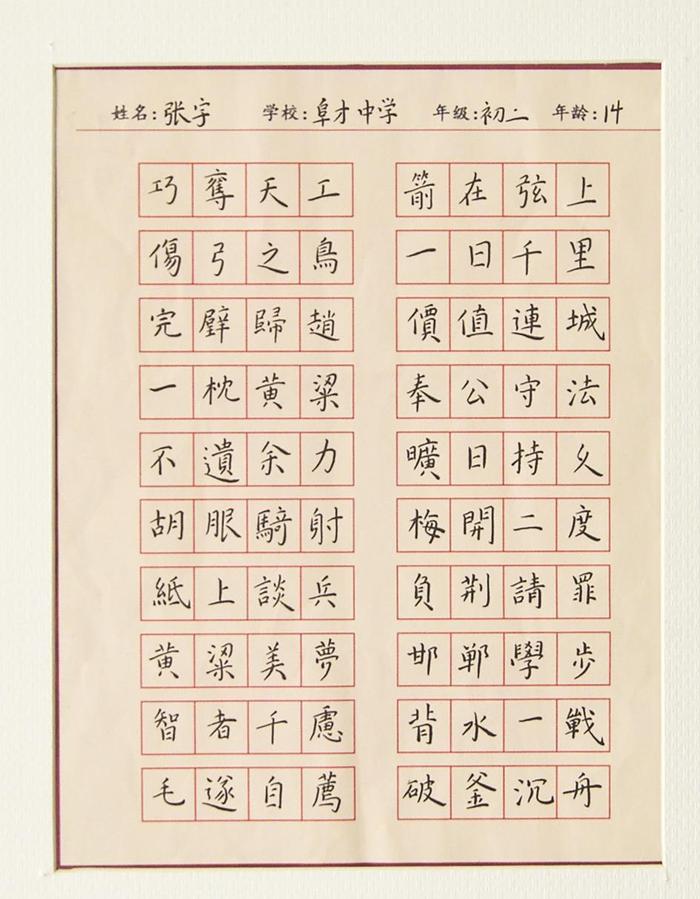 姓名:张字 学校:阜才中学 年级:初二 年龄:14
巧奪天工 箭在弦上
傷弓之鳥 一日千里
完璧歸趙 價值連城
一枕黄粱 奉公守法
不遺余力 曠日持久
胡服騎射 梅開二度
紙上談兵 負荆請罪
黄粱美夢 邯鄲學步
智者千慮 背水一戰
毛遂自薦 破釜沉舟